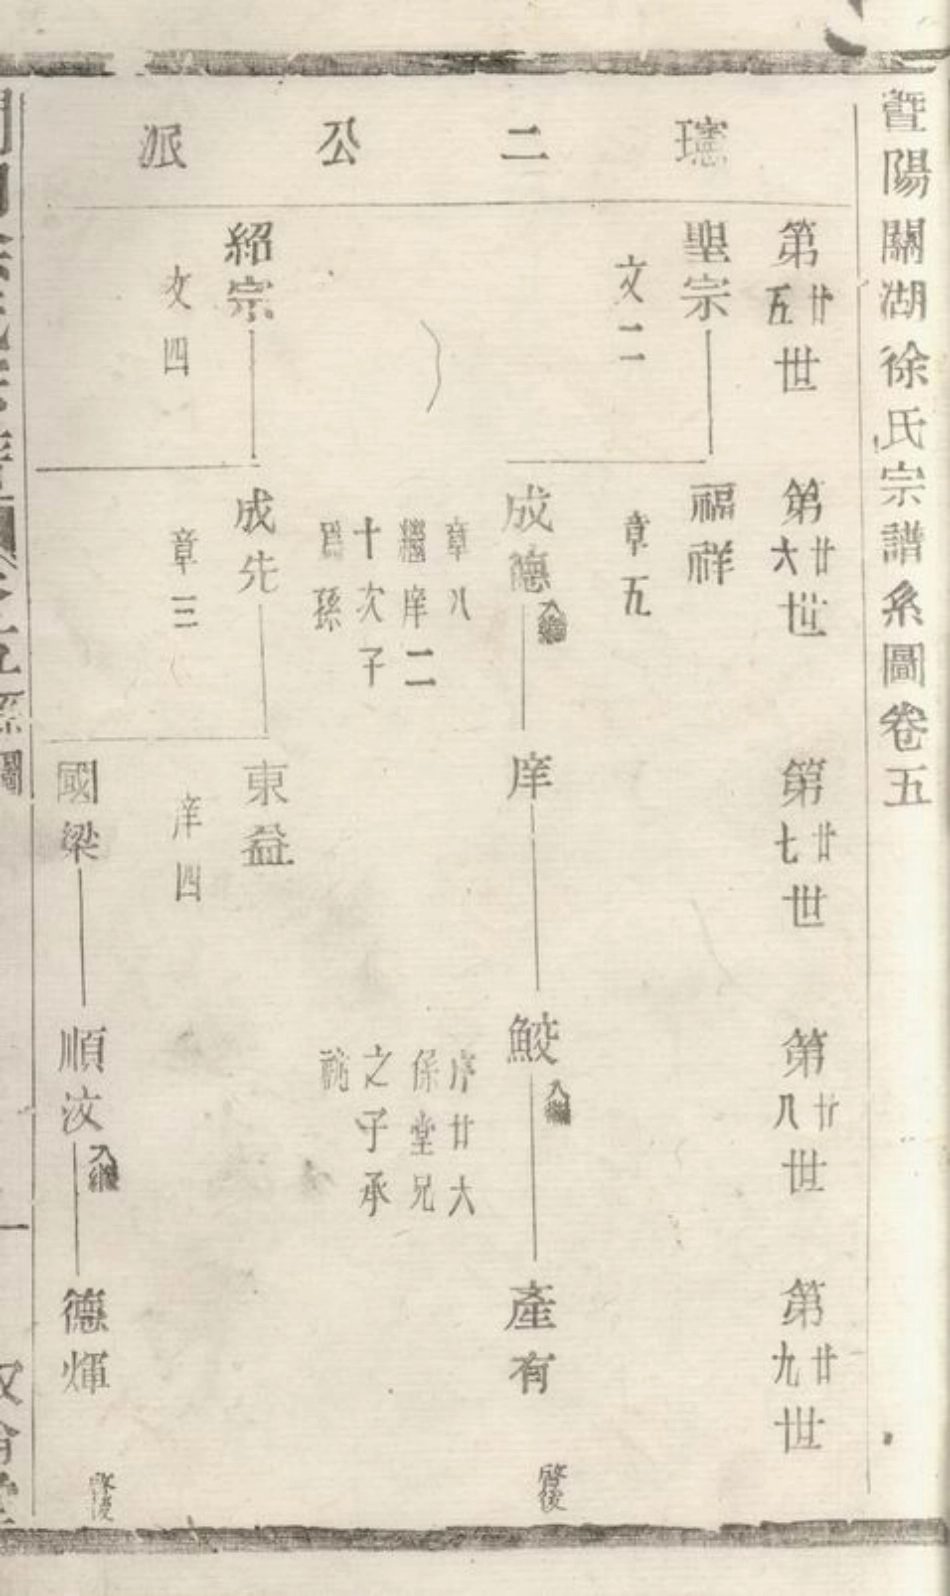 暨陽關湖徐氏宗譜系圖卷五
璁二公派
第廿五世
聖宗
文二
紹宗
文四
第廿六世
福祥
章五
成德
入繼
章八
繼庠二
十次子
爲孫
成先
章三
第廿七世
庠
東益
庠四
國梁
第廿八世
鮫
入繼
序廿大
係堂兄
之子承
祧
順汶
入繼
第廿九世
產有
啓後
德煇
啓後